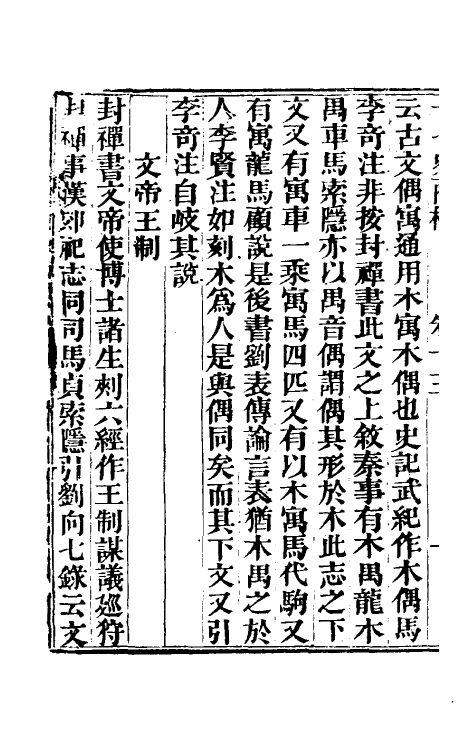 云古文偶寓通用木寓木偶也史記武紀作木偶馬
李奇注非按封禪書此文之上敘秦事有木禺龍木
禺車馬索隱亦以禺音偶謂偶其形於木此志之下
文又有寓車一乘寓馬四匹又有以木寓馬代駒又
有寓龍馬顧說是後書劉表傳論言表猶木禺之於
人李賢注如刻木爲人是與偶同矣而其下文又引
李奇注自岐其說
文帝王制
封禪書文帝使博士諸生刺六經作王制謀議廵狩
封禪事漢郊祀志同司馬貞索隱引劉向七錄云文